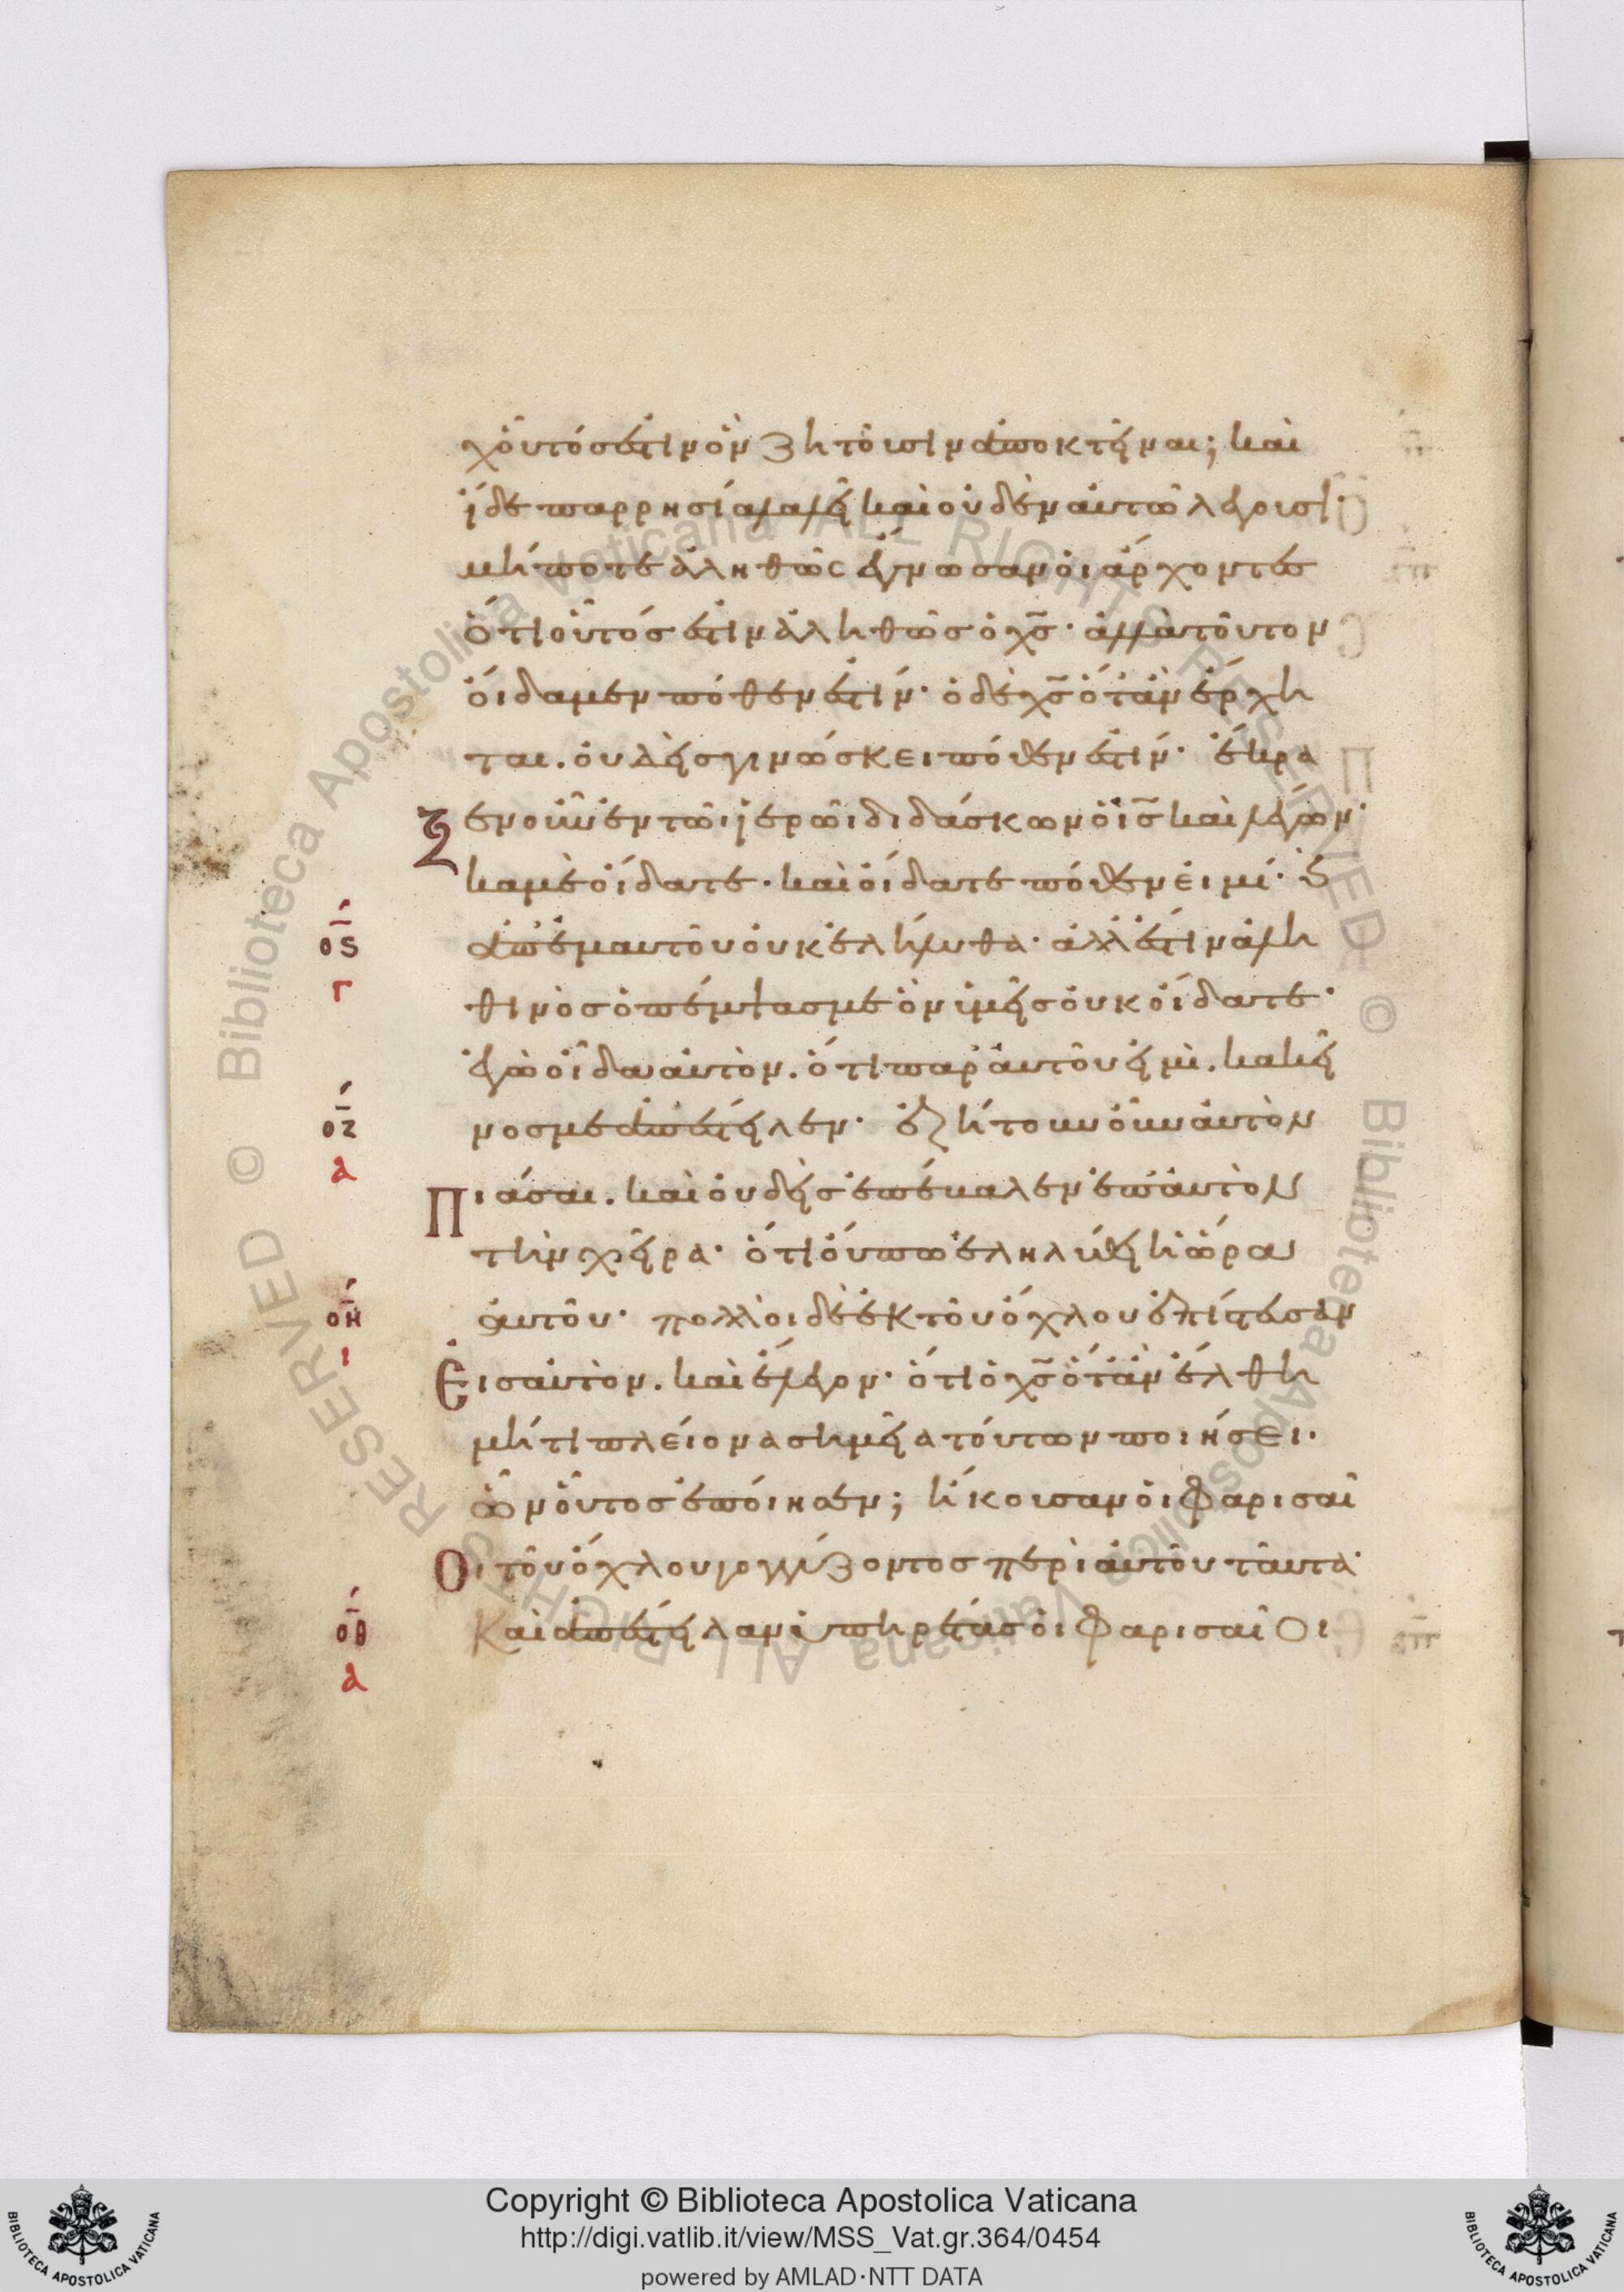 χ οὗτός ἐστιν ὃν ζητοῦσιν ἀποκτεῖναι; καὶ
ἴδε παρρησία λαλεῖ καὶ οὐδὲν αὐτῶ λέγουσι·
μήποτε ἀληθῶς ἔγνωσαν οἱ ἄρχοντες
ὅτι οὗτός ἐστιν ἀληθῶς ὁ χ̅ς̅· ἀλλὰ τοῦτον
οἴδαμεν πόθεν ἐστίν· ὁ δὲ χ̅ς̅ ὅταν ἔρχη
ται. οὐδεὶς γινώσκει πόθεν ἐστίν· ἔκρα
ξεν οὖν ἐν τῶι ἱερῶι διδάσκων ὁ ι̅ς̅ καὶ λέγων·
κἀμὲ οἴδατε· καὶ οἴδατε πόθεν εἰμί· καὶ
ος̅ ἀπ' ἐμαυτοῦ οὐκ ἐλήλυθα· ἀλλ' ἔστιν ἀλη
γ θινὸς ὁ πέμψας με ὃν ὑμεῖς οὐκ οἴδατε·
ἐγὼ οἶδα αὐτὸν. ὅτι παρ' αὐτοῦ εἰμὶ. κἀκεῖ
οζ̅ νός με ἀπέστειλεν· ἐζήτουν οὖν αὐτὸν
α
πιάσαι. καὶ οὐδεὶς ἐπέβαλεν ἐπ' αὐτὸν
τὴν χεῖρα· ὅτι οὔπω ἐληλύθει ἡ ὥρα
οη̅ αὐτοῦ· πολλοὶ δὲ ἐκ τοῦ ὄχλου ἐπίστευσαν
ι
εἰς αὐτὸν. καὶ ἔλεγον· ὅτι ὁ χ̅ς̅ ὅταν ἔλθη
μήτι πλείονα σημεῖα τούτων ποιήσει·
ὧν οὗτος ἐποίησεν; ἤκουσαν οἱ φαρισαῖ
οι τοῦ ὄχλου γογγύζοντος περὶ αὐτοῦ ταῦτα·
οθ̅ καὶ ἀπέστειλαν ὑπηρέτας οἱ φαρισαῖοι
α
Copyright © Biblioteca Apostolica Vaticana
http://digi.vatlib.it/view/MSS_Vat.gr.364/0454
powered by AMLAD·NTT DATA
BIBLIOTECA APOSTOLICA VATICANA
BIBLIOTECA APOSTOLICA VATICANA
© Biblioteca Apostolica Vaticana ALL RIGHTS RESERVED
© Biblioteca Apostolica Vaticana ALL RIGHTS RESERVED